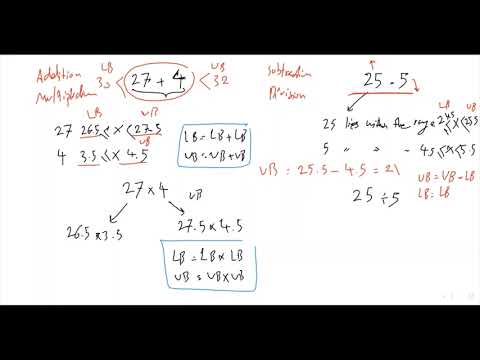 Addition
Multiplication
LB
30 < 27 + 4 < 32
UB
LB UB
27 26.5 ≤ x < 27.5
UB
4 3.5 ≤ x < 4.5
LB = LB + LB
UB = UB + UB
27 x 4
UB
26.5 x 3.5
27.5 x 4.5
LB = LB x LB
UB = UB x UB
Subtraction
Division
25 - 5
LB UB
25 lies within the range 24.5 ≤ x < 25.5
5 " " - 4.5 ≤ x < 5.5
UB = 25.5 - 4.5 = 21
UB = UB - LB
LB = LB
25 ÷ 5